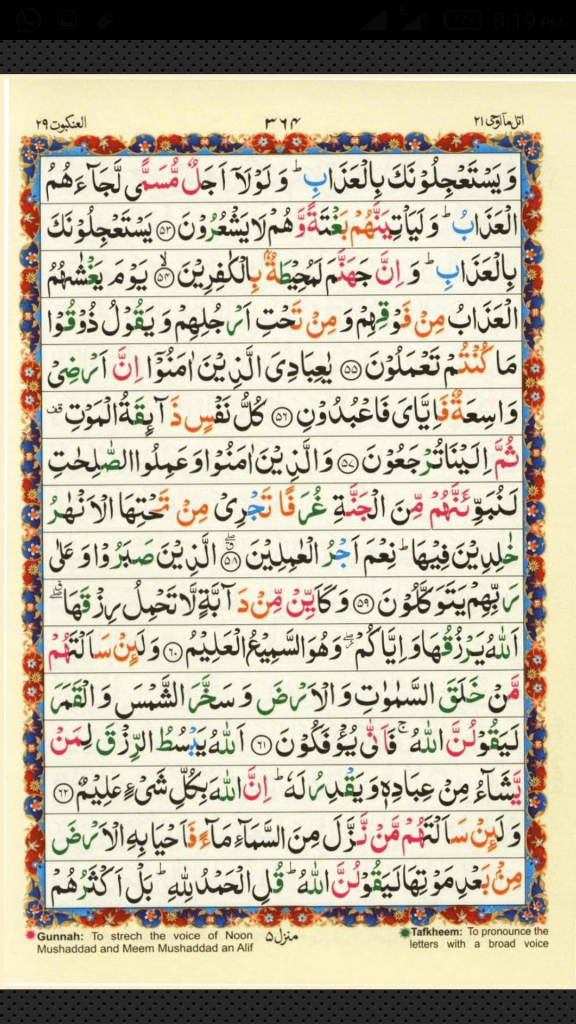 8:19 PM
77%
E
اتل مآاوحی ۲۱
۳۶۴
العنکبوت ۲۹
وَ يَسْتَعْجِلُوْنَكَ بِالْعَذَابِ ؕ وَ لَوْلَاۤ اَجَلٌ مُّسَمًّى لَّجَآءَهُمُ
الْعَذَابُ ؕ وَ لَيَاْتِيَنَّهُمْ بَغْتَةً وَّ هُمْ لَا يَشْعُرُوْنَ ﴿۵۳﴾ يَسْتَعْجِلُوْنَكَ
بِالْعَذَابِ ؕ وَ اِنَّ جَهَنَّمَ لَمُحِيْطَةٌۢ بِالْكٰفِرِيْنَ ۙ﴿۵۴﴾ يَوْمَ يَغْشٰىهُمُ
الْعَذَابُ مِنْ فَوْقِهِمْ وَ مِنْ تَحْتِ اَرْجُلِهِمْ وَ يَقُوْلُ ذُوْقُوْا
مَا كُنْتُمْ تَعْمَلُوْنَ ﴿۵۵﴾ يٰعِبَادِيَ الَّذِيْنَ اٰمَنُوْۤا اِنَّ اَرْضِيْ
وَاسِعَةٌ فَاِيَّايَ فَاعْبُدُوْنِ ﴿۵۶﴾ كُلُّ نَفْسٍ ذَآئِقَةُ الْمَوْتِ قف
ثُمَّ اِلَيْنَا تُرْجَعُوْنَ ﴿۵۷﴾ وَ الَّذِيْنَ اٰمَنُوْا وَ عَمِلُوا الصّٰلِحٰتِ
لَنُبَوِّئَنَّهُمْ مِّنَ الْجَنَّةِ غُرَفًا تَجْرِيْ مِنْ تَحْتِهَا الْاَنْهٰرُ
خٰلِدِيْنَ فِيْهَا ؕ نِعْمَ اَجْرُ الْعٰمِلِيْنَ ﴿۵۸﴾ الَّذِيْنَ صَبَرُوْا وَ عَلٰى
رَبِّهِمْ يَتَوَكَّلُوْنَ ﴿۵۹﴾ وَ كَاَيِّنْ مِّنْ دَآبَّةٍ لَّا تَحْمِلُ رِزْقَهَا
اَللّٰهُ يَرْزُقُهَا وَ اِيَّاكُمْ ۖ وَ هُوَ السَّمِيْعُ الْعَلِيْمُ ﴿۶۰﴾ وَ لَئِنْ سَاَلْتَهُمْ
مَّنْ خَلَقَ السَّمٰوٰتِ وَ الْاَرْضَ وَ سَخَّرَ الشَّمْسَ وَ الْقَمَرَ
لَيَقُوْلُنَّ اللّٰهُ ۚ فَاَنّٰى يُؤْفَكُوْنَ ﴿۶۱﴾ اَللّٰهُ يَبْسُطُ الرِّزْقَ لِمَنْ
يَّشَآءُ مِنْ عِبَادِهٖ وَ يَقْدِرُ لَهٗ ؕ اِنَّ اللّٰهَ بِكُلِّ شَيْءٍ عَلِيْمٌ ﴿۶۲﴾
وَ لَئِنْ سَاَلْتَهُمْ مَّنْ نَّزَّلَ مِنَ السَّمَآءِ مَآءً فَاَحْيَا بِهِ الْاَرْضَ
مِنْۢ بَعْدِ مَوْتِهَا لَيَقُوْلُنَّ اللّٰهُ ؕ قُلِ الْحَمْدُ لِلّٰهِ ؕ بَلْ اَكْثَرُهُمْ
منزل ۵
Gunnah: To strech the voice of Noon
Mushaddad and Meem Mushaddad an Alif
Tafkheem: To pronounce the
letters with a broad voice